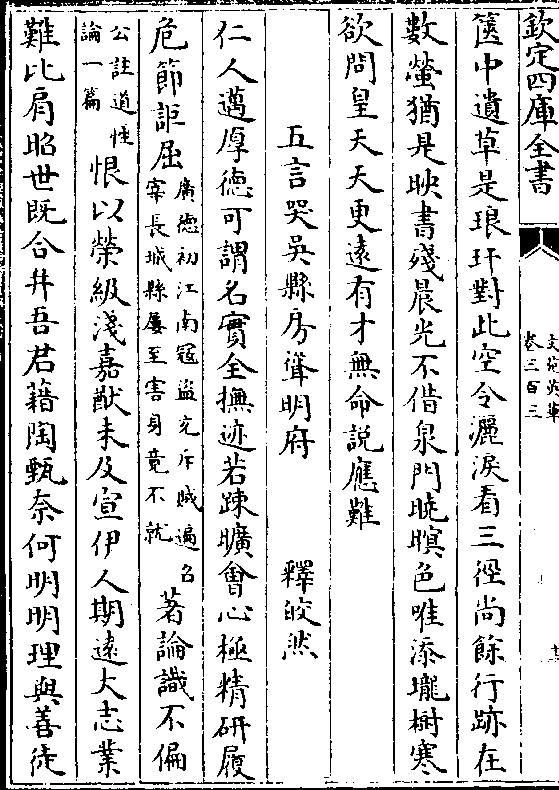 欽定四庫全書
文苑英華
卷三百三
篋中遺草是琅玕對此空令灑淚看三徑尚餘行跡在
數螢猶是映書殘晨光不借泉門曉暝色唯添壠樹寒
欲問皇天天更遠有才無命說應難
五言哭吳縣房聳明府　釋皎然
仁人邁厚德可謂名實全撫迹若踈曠會心極精研履
危節詎屈廣德初江南冦盜充斥賊逼名宰長城縣屢至害身竟不就著論識不偏
公註道性論一篇恨以榮級淺嘉猷未及宣伊人期遠大志業
難比肩昭世既合幷吾君藉陶甄奈何明明理與善徒